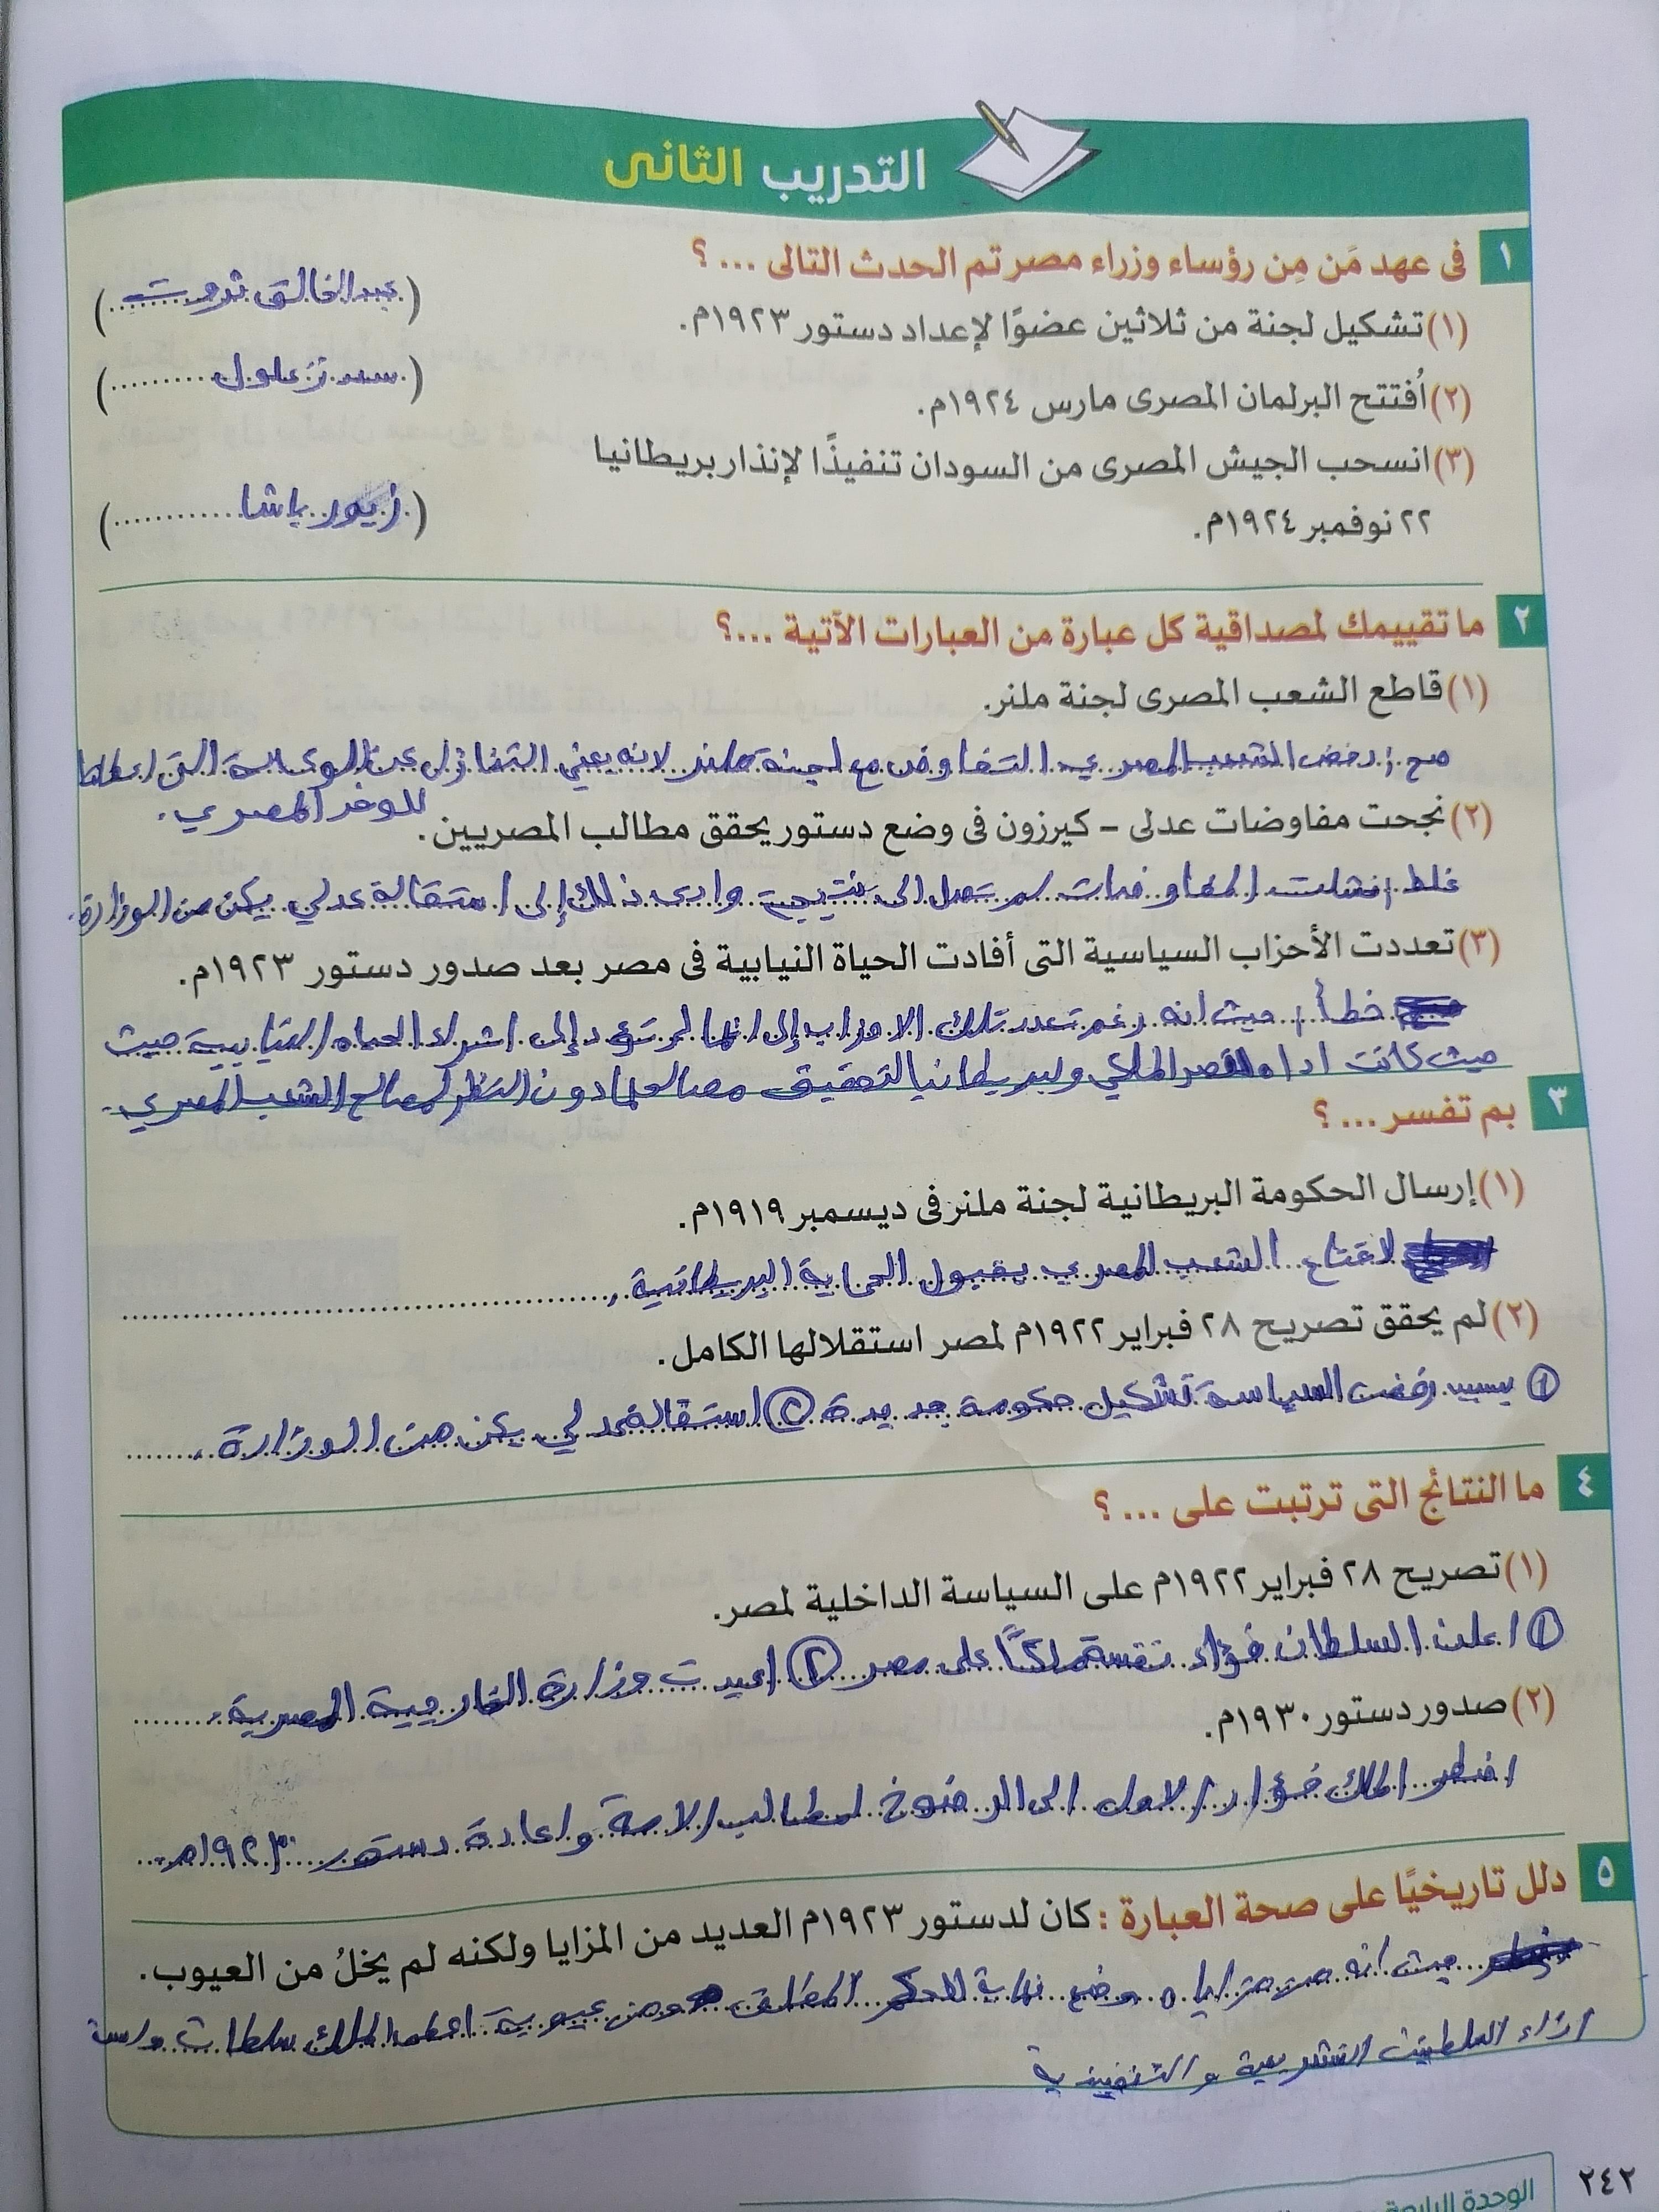 التدريب الثانى
١ فى عهد مَن مِن رؤساء وزراء مصر تم الحدث التالى ... ؟
(١) تشكيل لجنة من ثلاثين عضوًا لإعداد دستور ١٩٢٣م. (عبد الخالق ثروت)
(٢) أُفتتح البرلمان المصرى مارس ١٩٢٤م. (سعد زغلول)
(٣) انسحب الجيش المصرى من السودان تنفيذًا لإنذار بريطانيا
٢٢ نوفمبر ١٩٢٤م. (زيور باشا)
٢ ما تقييمك لمصداقية كل عبارة من العبارات الآتية ...؟
(١) قاطع الشعب المصرى لجنة ملنر.
صح ; رفض الشعب المصري التفاوض مع لجنة ملنر لانه يعني التنازل عن الوكالة التي اعطاها
للوفد المصري.
(٢) نجحت مفاوضات عدلى – كيرزون فى وضع دستور يحقق مطالب المصريين.
غلط , فشلت المفاوضات لم تصل الى نتيجة وادى ذلك إلى استقالة عدلي يكن من الوزارة.
(٣) تعددت الأحزاب السياسية التى أفادت الحياة النيابية فى مصر بعد صدور دستور ١٩٢٣م.
خطأ , حيث انه رغم تعدد تلك الاحزاب إلى انها لم تؤد إلى اثراء الحياه النيابية حيث
حيث كانت اداه القصر الملكي وبريطانيا لتحقيق مصالحها دون النظر لمصالح الشعب المصري.
٣ بم تفسر ... ؟
(١) إرسال الحكومة البريطانية لجنة ملنر فى ديسمبر ١٩١٩م.
لاقناع الشعب المصري بقبول الحماية البريطانية.
(٢) لم يحقق تصريح ٢٨ فبراير ١٩٢٢م لمصر استقلالها الكامل.
① بسبب رفضت السياسة تشكيل حكومة جديدة ② استقالة عدلي يكن من الوزارة.
٤ ما النتائج التى ترتبت على ... ؟
(١) تصريح ٢٨ فبراير ١٩٢٢م على السياسة الداخلية لمصر.
① اعلن السلطان فؤاد نفسة ملكًا على مصر ② اعيدت وزارة الخارجية المصرية.
(٢) صدور دستور ١٩٣٠م.
اضطر الملك فؤاد الاول الى الرضوخ لمطالب الامة واعادة دستور ١٩٢٣م.
٥ دلل تاريخيًا على صحة العبارة : كان لدستور ١٩٢٣م العديد من المزايا ولكنه لم يخلُ من العيوب.
حيث انه من مزاياه وضع نهاية للحكم المطلق ومن عيوبية اعطى الملك سلطات واسعة
ازاء السلطتين التشريعية والتنفيذية
٢٤٢
الوحدة الرابعة